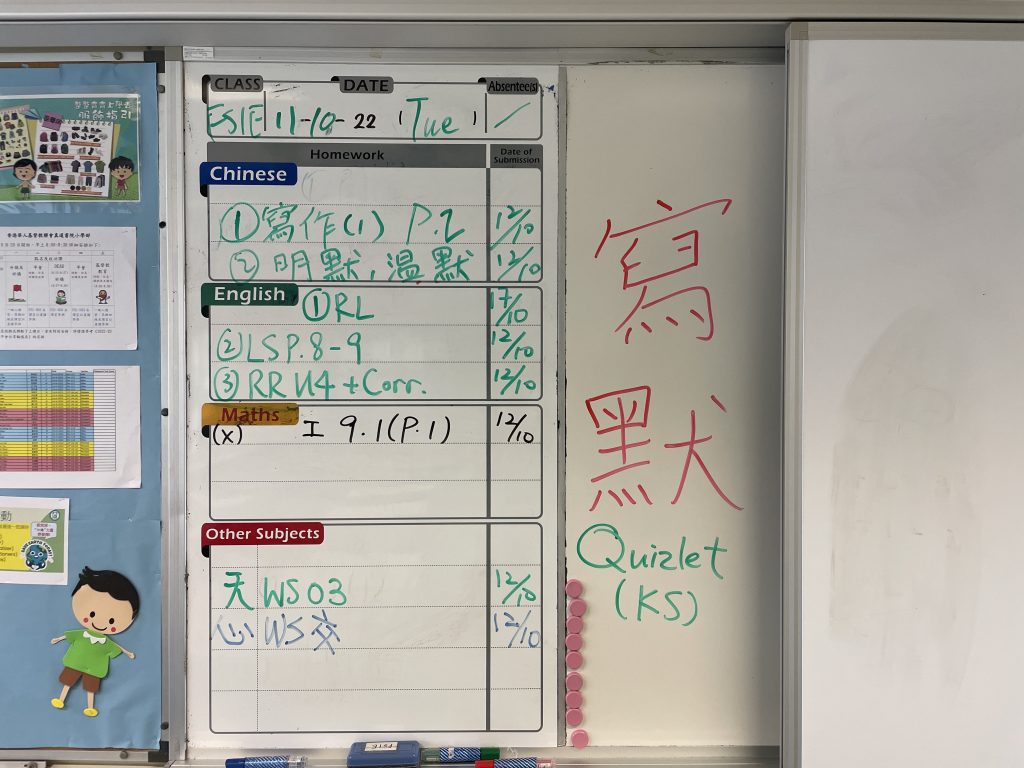 CLASS DATE Absentee(s)
FS1E 11-10-22 (Tue) /
Homework Date of Submission
Chinese
①寫作(1) P.2 12/10
②明默,溫默 12/10
English ①RL 17/10
②LS P.8-9 12/10
③RR U4 + Corr. 12/10
Maths
(x) I 9.1(P.1) 12/10
Other Subjects
天 WS03 12/10
心 WS交 12/10
寫
默
Quizlet
(KS)
服飾指引
香港華人基督教聯會真道書院小學部
FS1E